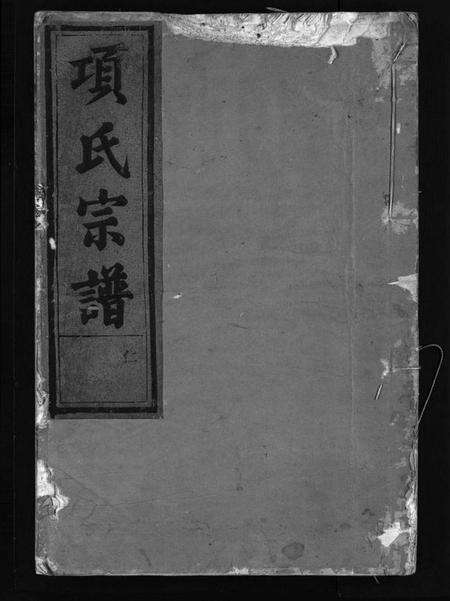 項氏宗譜
仁